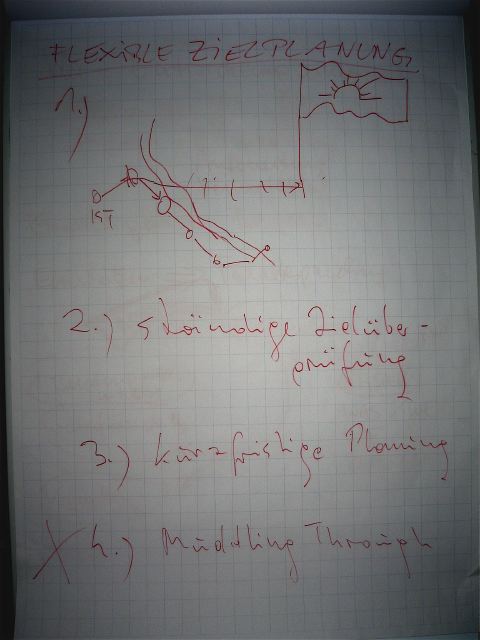 FLEXIBLE ZIELPLANUNG
1.)
IST
2.) ständige Zielüber-
prüfung
3.) kurzfristige Planung
4.) Muddling Through